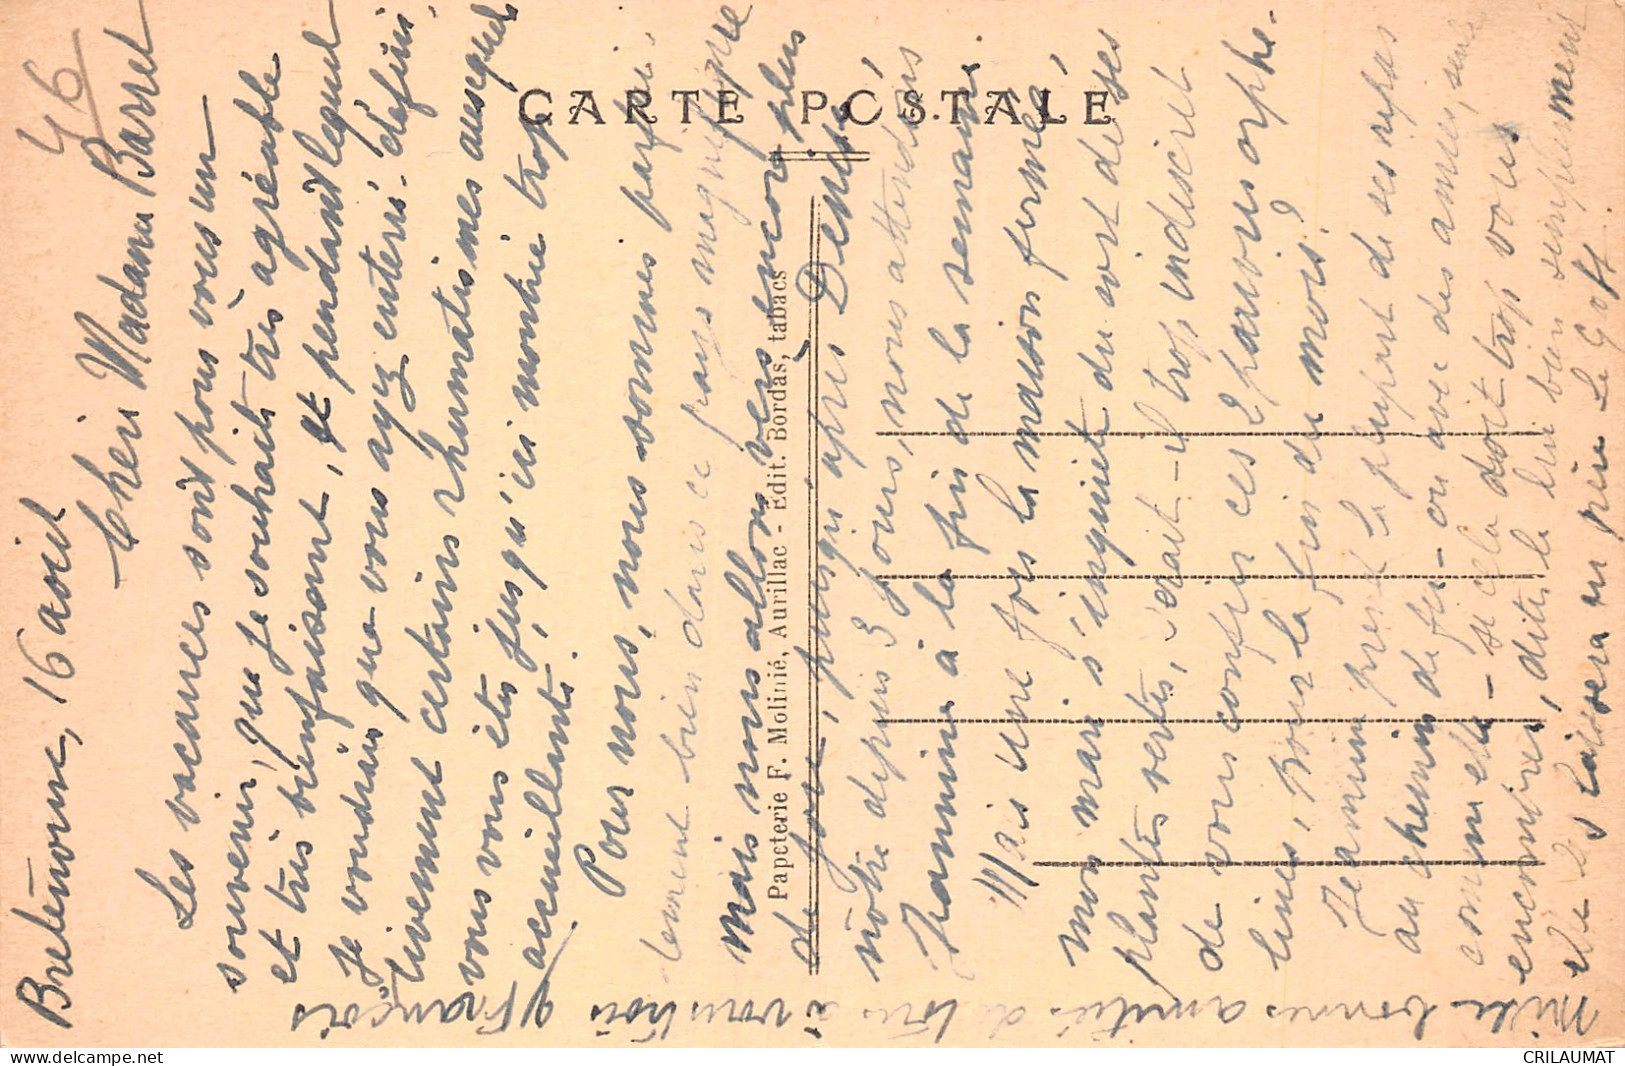 46
Bretenoux, 16 août
Chère Madame Barret
Les vacances sont pour vous un
souvenir, que je souhaite très agréable
et très bienfaisant, et pendant lequel
Je voudrais que vous ayez enterré défini-
tivement certains rhumatismes auxquels
vous vous êtes jusqu'ici montrée trop
accueillante.
Pour nous, nous sommes parfai-
tement bien dans ce pays magnifique
mais nous allons vers encore plus
de joie, puisqu'après Denise,
nôtre depuis 3 jours, nous attendons
Jeannine à la fin de la semaine
Mais une fois la maison fermée,
mon mari s'inquiète du sort de ses
plantes vertes, serait-il trop indiscret
de vous confier ces 2 pauvres orphe-
lines, pour la fin du mois?
Jeannine prend la plupart de ses repas
au chemin de fer - ou avec des amies, seule
comme elle - si cela doit trop vous
encombrer, dites le lui bien simplement
elle s'aisera
Mille bonnes amitiés de tous à vous trois
François
CARTE POSTALE
Papeterie F. Molinié, Aurillac - Edit. Bordas, tabacs
CRILAUMAT